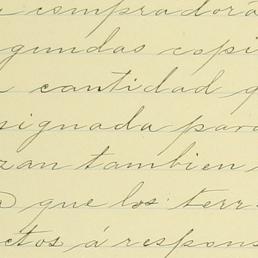 compradorá
gundas copi
cantidad q
signada para
zan tambien
que los terr
ctos á respons